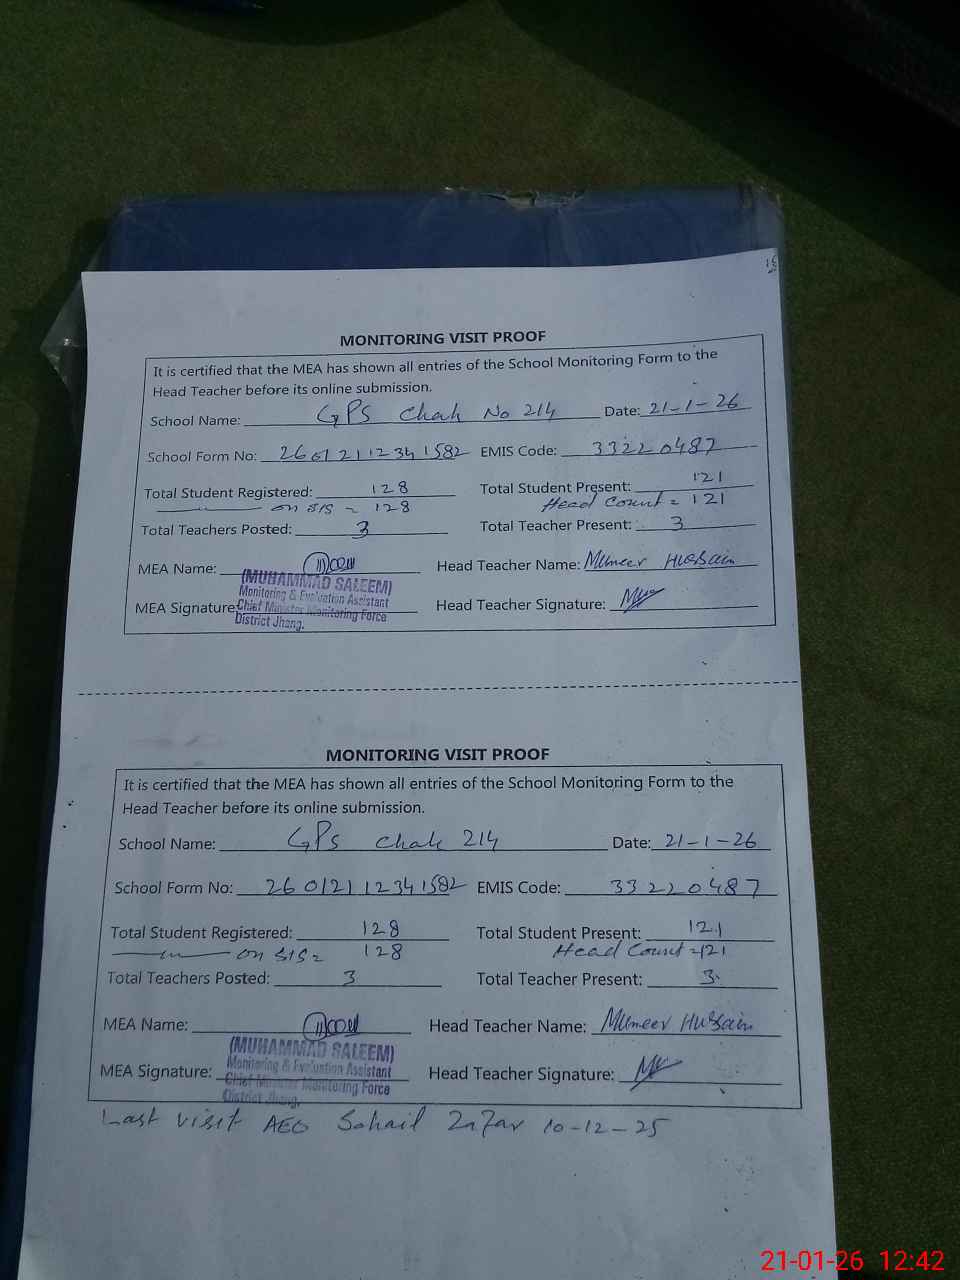 MONITORING VISIT PROOF
It is certified that the MEA has shown all entries of the School Monitoring Form to the
Head Teacher before its online submission.
School Name: GPS Chak No 214 Date: 21-1-26
School Form No: 26012112341582 EMIS Code: 33220487
Total Student Registered: 128 Total Student Present: 121
on SIS = 128 Head Count = 121
Total Teachers Posted: 3 Total Teacher Present: 3
MEA Name: Head Teacher Name: Muneer Hussain
(MUHAMMAD SALEEM)
Monitoring & Evaluation Assistant
MEA Signature: Chief Minister Monitoring Force Head Teacher Signature:
District Jhang.
MONITORING VISIT PROOF
It is certified that the MEA has shown all entries of the School Monitoring Form to the
Head Teacher before its online submission.
School Name: GPS Chak 214 Date: 21-1-26
School Form No: 26012112341582 EMIS Code: 33220487
Total Student Registered: 128 Total Student Present: 121
on SIS = 128 Head Count = 121
Total Teachers Posted: 3 Total Teacher Present: 3
MEA Name: Head Teacher Name: Muneer Hussain
(MUHAMMAD SALEEM)
Monitoring & Evaluation Assistant
MEA Signature: Chief Minister Monitoring Force Head Teacher Signature:
District Jhang.
Last visit AEO Sohail Zafar 10-12-25
21-01-26 12:42